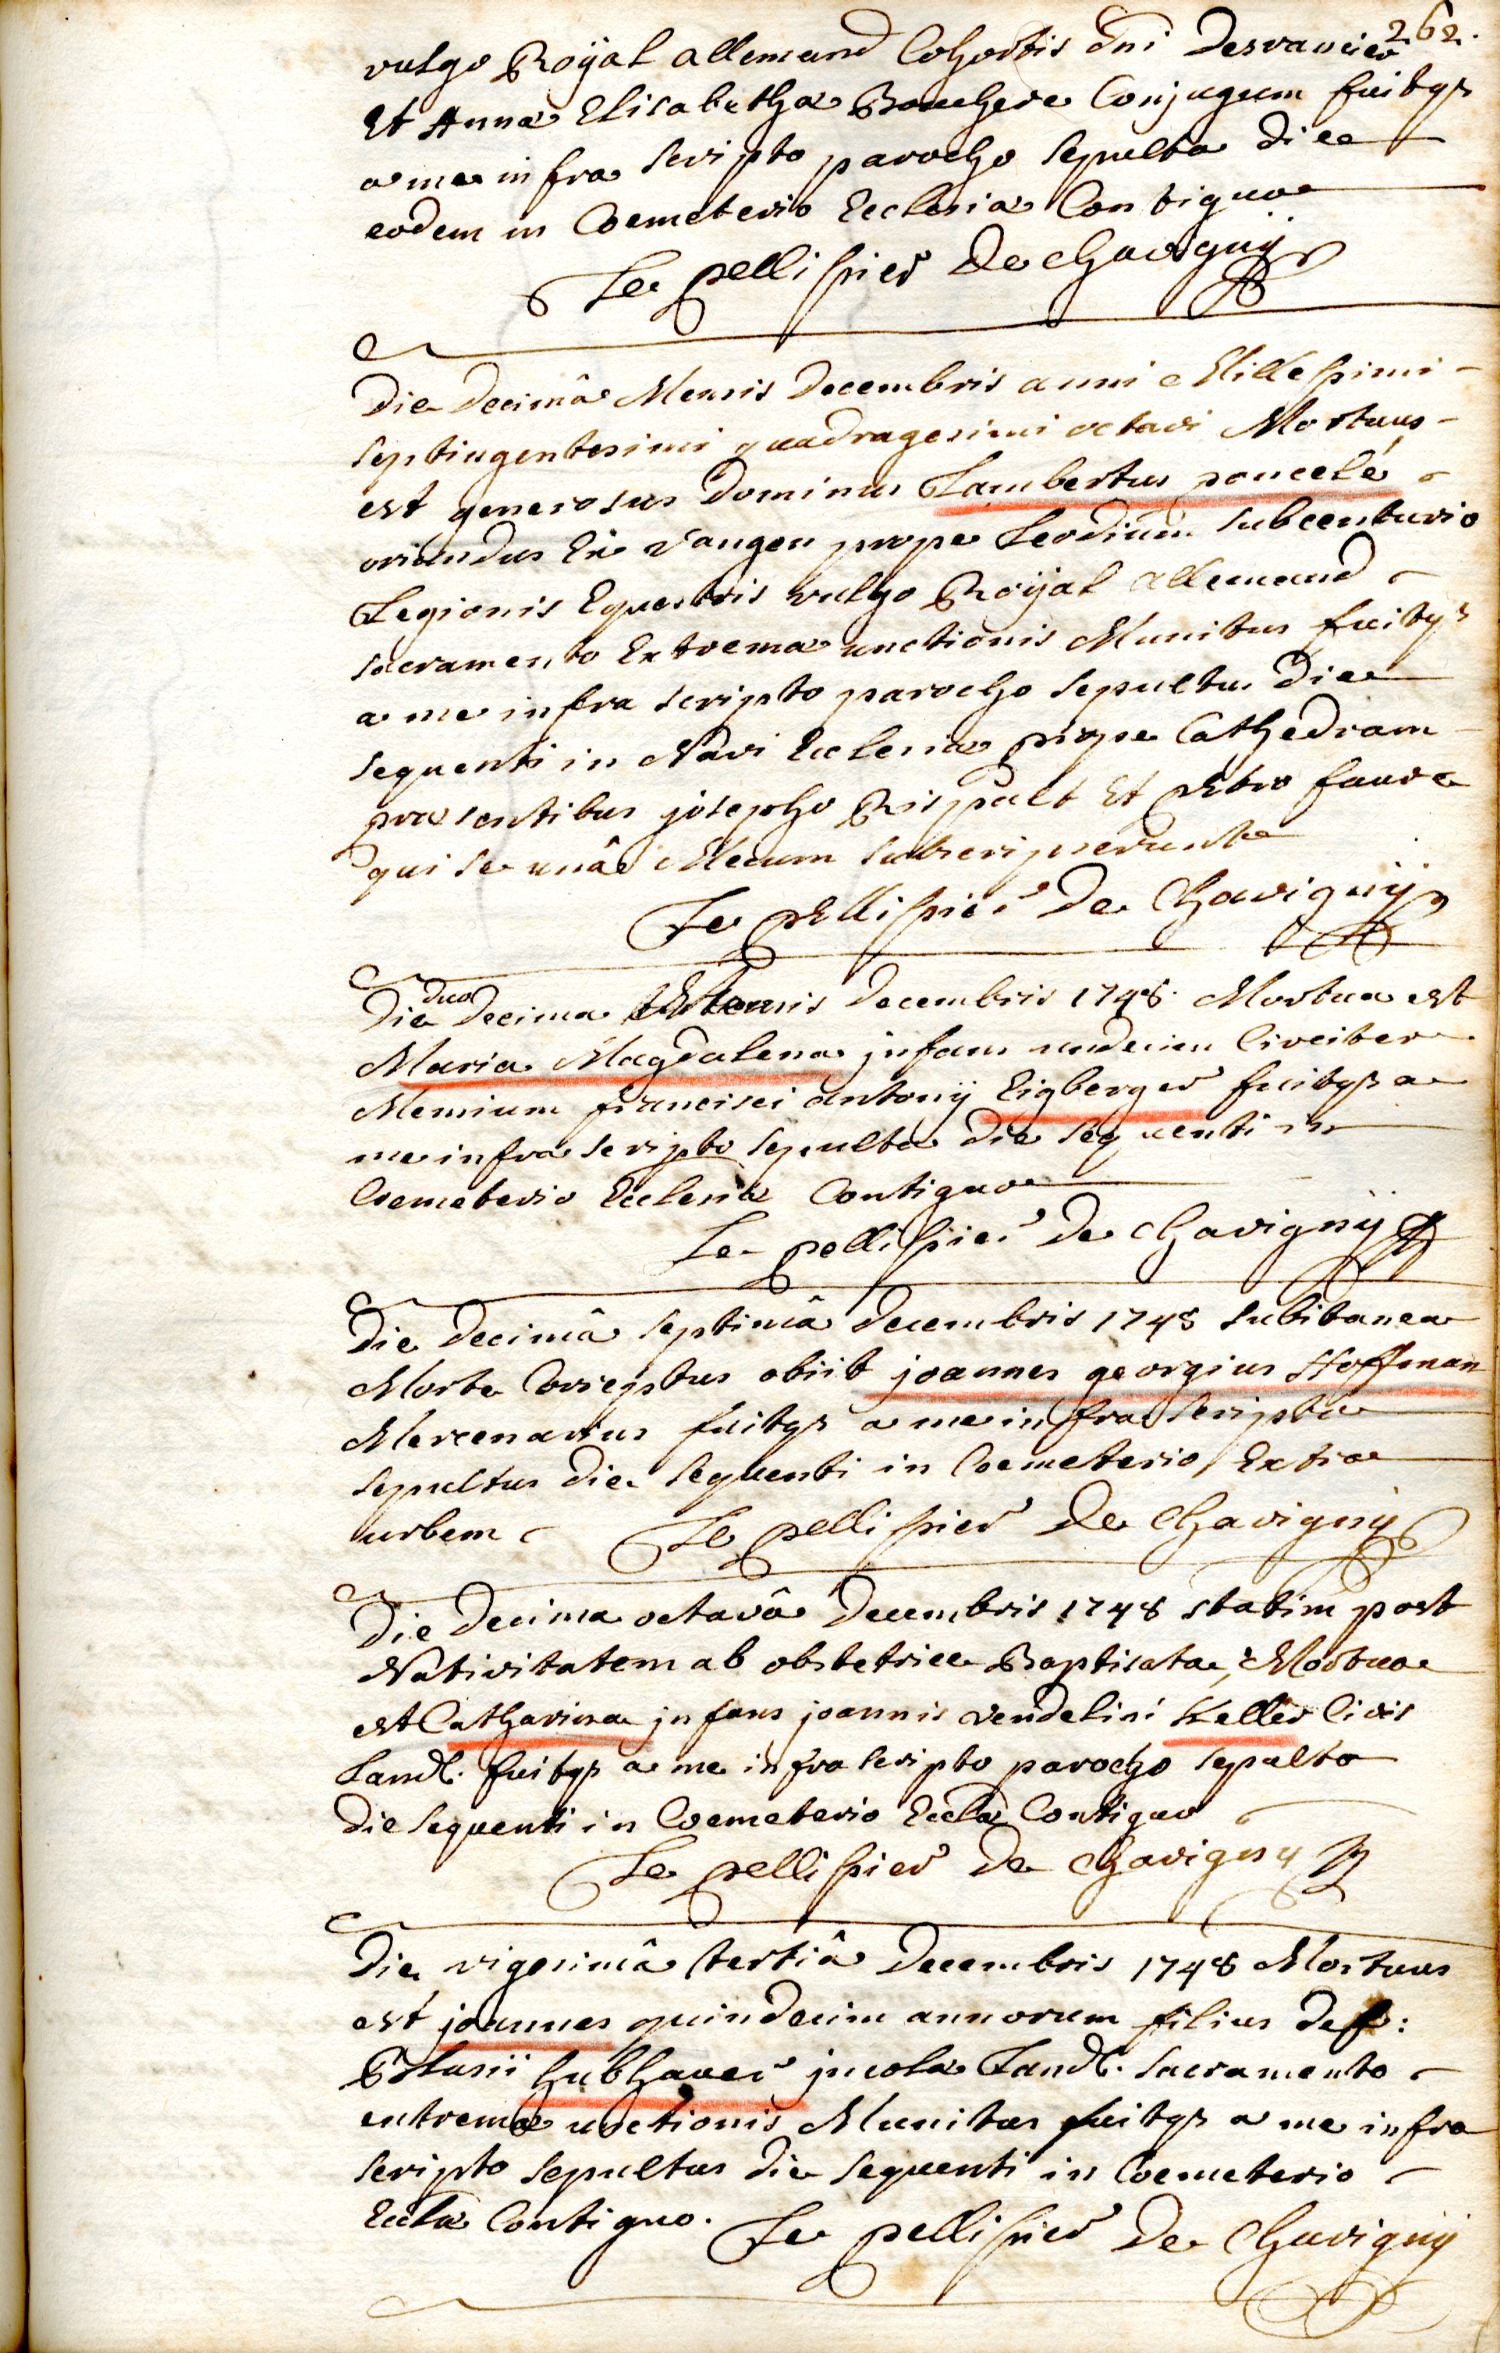 262.
vulgo Roÿal allemand Cohortis dni Desvancier
Et Anna Elisabetha Conjugum fuitqz
a me infra scripto parocho sepulta die
eodem in Coemeterio Ecclesiæ Contiguo
Le pellissier De chavignÿ
Die decimâ Mensis Decembris anni Millessimi
septingentesimi quadragesimi octavi Mortuus
est generosus Dominus Lambertus poncelé
oriundus Ex vangen prope Leodium subcenturio
Legionis Equestris vulgo Roÿal allemand
sacramento Extremæ unctionis Munitus fuitqz
a me infra scripto parocho sepultus Die
sequenti in Navi Ecclesiæ prope Cathedram
præsentibus josepho Rispalt Et petro faure
qui se unâ Mecum subscripserunt
Le pellissier De Chavignÿ
duo
Die Decima Decembris 1748. Mortua est
Maria Magdalena jnfans undecim Circiter
Mensium francisci antonÿ Eigberger fuitqz a
me infra scripto sepulta die sequenti in
Coemeterio Ecclesiæ Contiguo
Le pellissier De chavignÿ
Die Decimâ septimâ Decembris 1748 subitanea
Morte Correptus obiit joannes georgius Hoffman
Mercenarius fuitqz a me infra scripto
sepultus die sequenti in Coemeterio Extra
urbem Le pellissier De Chavignÿ
Die Decima octavâ Decembris 1748 statim post
Nativitatem ab obstetrice Baptisata, Mortua
est Catharina jnfans joannis vendelini Keller Civis
Land. fuitqz a me infra scripto parocho sepulta
die sequenti in Coemeterio Eccla Contiguo
Le pellissier De chavigny
Die vigesimâ tertiâ Decembris 1748 Mortuus
est joannes quindecim annorum filius def:
Blasii hubhauer jncolæ Land. sacramento
extremæ unctionis Munitus fuitqz a me infra
scripto sepultus die sequenti in Coemeterio
Eccla Contiguo. Le pellissier De Chavignÿ